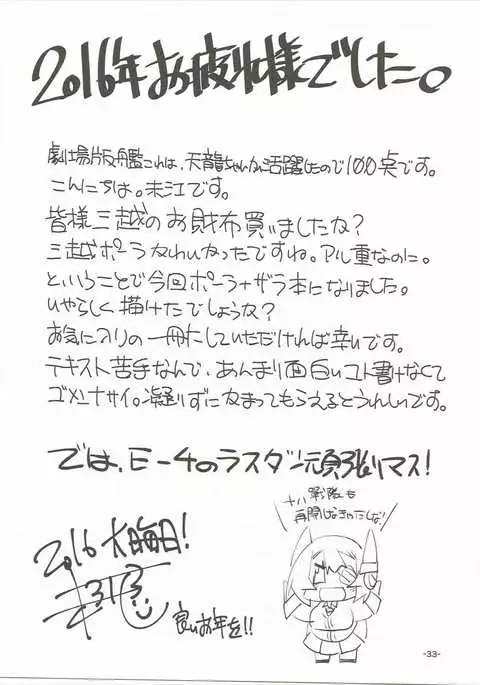 2016年お疲れ様でした。
劇場版艦これは、天龍ちゃんが活躍したので100点です。
こんにちは。未江です。
皆様三越のお財布買いましたか?
三越ポーラかわいかったですね。アル重なのに。
ということで今回ポーラ+ザラ本になりました。
いやらしく描けたでしょうか?
お気に入りの一冊にしていただければ幸いです。
テキスト苦手なんで、あんまり面白いコト書けなくて
ゴメンナサイ。凝りずにかまってもらえるとうれしいです。
では、E-4のラスダン頑張りマス!
十八戦隊も
再開しなきゃだしな!
2016大晦日!
良いお年を!!
-33-